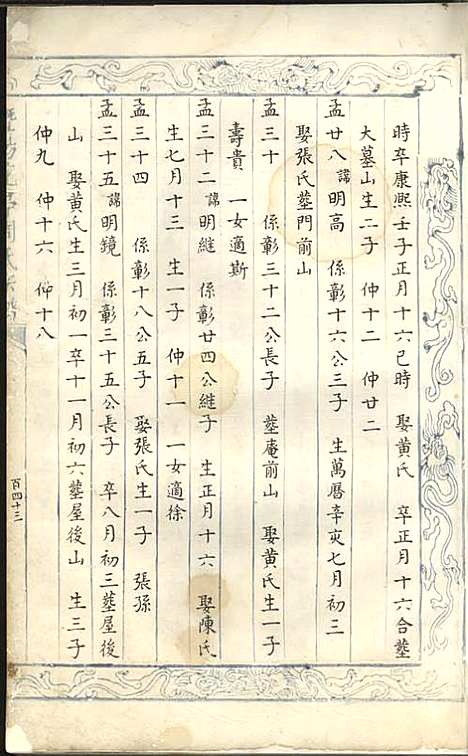 時卒康熙壬子正月十六巳時 娶黃氏 卒正月十六合塟
大墓山生二子 仲十二 仲廿二
孟廿八諱明高 係彰十六公三子 生萬曆辛亥七月初三
娶張氏塟門前山
孟三十 係彰三十二公長子 塟庵前山 娶黃氏生一子
壽貴 一女適斯
孟三十二諱明継 係彰廿四公継子 生正月十六 娶陳氏
生七月十三 生一子 仲十一 一女適徐
孟三十四 係彰十八公五子 娶張氏生一子 張孫
孟三十五諱明鏡 係彰三十五公長子 卒八月初三塟屋後
山 娶黃氏生三月初一卒十一月初六塟屋後山 生三子
仲九 仲十六 仲十八
百四十三